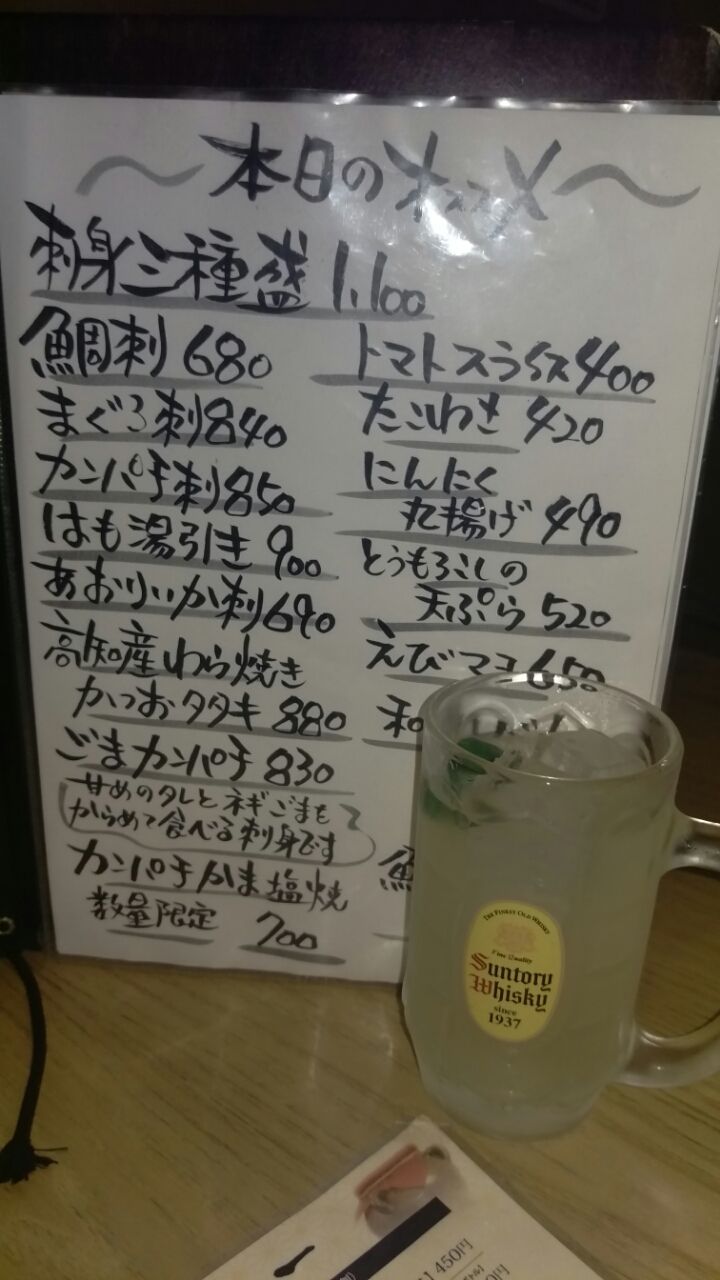 〜本日のオススメ〜
刺身三種盛 1,100
鯛刺 680
まぐろ刺 840
カンパチ刺 850
はも湯引き 900
あおりいか刺 690
高知産わら焼き
かつおタタキ 880
ごまカンパチ 830
甘めのタレとネギごまを
からめて食べる刺身です
カンパチかま塩焼
数量限定 700
トマトスライス 400
たこわさ 420
にんにく
丸揚げ 490
とうもろこしの
天ぷら 520
えびマヨ 650
和
THE FINEST OLD WHISKY
Fine Quality
Suntory
Whisky
since
1937
450円